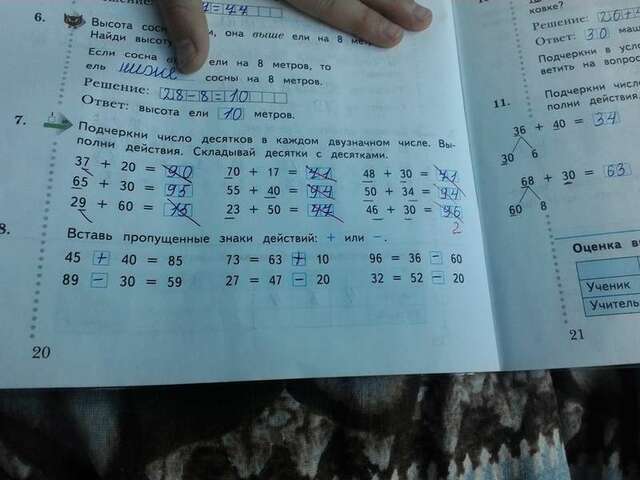 6.
Высота сосн
Найди высоту м, она выше ели на 8 мет
Если сосна ели на 8 метров, то
ель ниже сосны на 8 метров.
Решение: 18-8=10
Ответ: высота ели 10 метров.
7.
Подчеркни число десятков в каждом двузначном числе. Вы-
полни действия. Складывай десятки с десятками.
37 + 20 = 70 + 17 = 48 + 30 =
65 + 30 = 95 55 + 40 = 50 + 34 =
29 + 60 = 23 + 50 = 46 + 30 =
2
8.
Вставь пропущенные знаки действий: + или -.
45 + 40 = 85 73 = 63 + 10 96 = 36 - 60
89 - 30 = 59 27 = 47 - 20 32 = 52 - 20
20
ковке?
Решение: 20+
Ответ: 30 ма
Подчеркни в усло
ветить на вопрос
11.
Подчеркни чис
полни действия
36 + 40 = 34
30 6
68 + 30 = 63
60 8
Оценка в
Ученик
Учитель
21